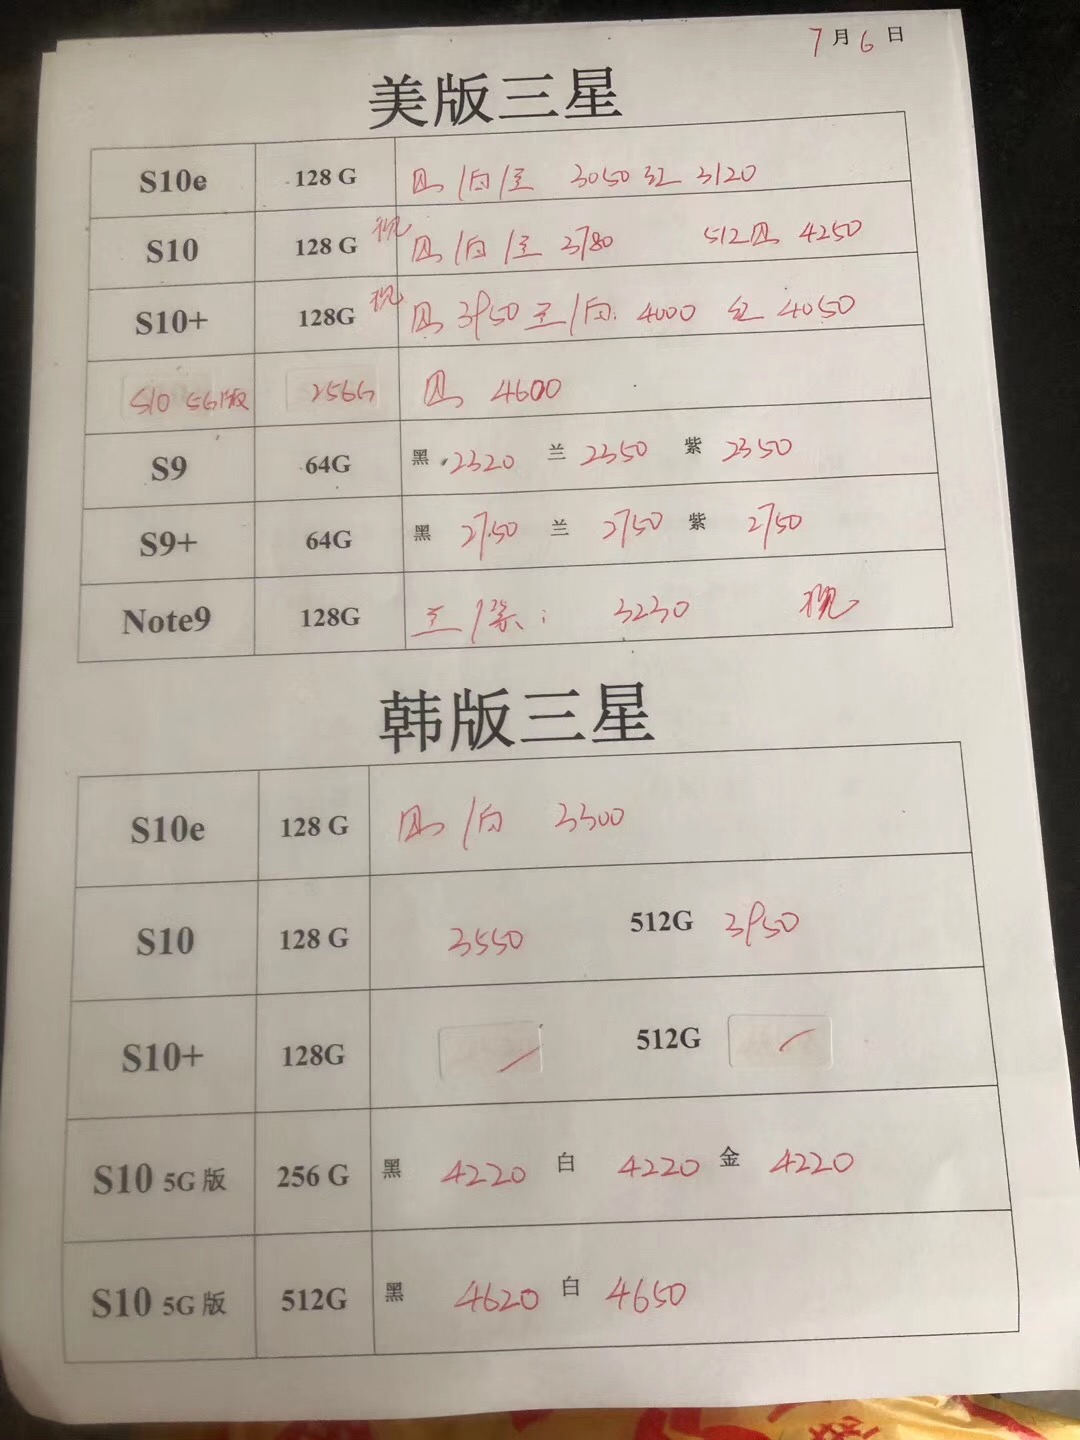 7月6日
美版三星
S10e 128 G 黑/白/兰 3050 红 3120
S10 128 G 现 黑/白/兰 3780 512黑 4250
S10+ 128G 现 黑 3950 兰/白: 4000 红 4050
S10 5G版 256G 黑 4600
S9 64G 黑 2320 兰 2350 紫 2350
S9+ 64G 黑 2750 兰 2750 紫 2750
Note9 128G 兰/紫: 3230 现
韩版三星
S10e 128 G 黑/白 3300
S10 128 G 3550 512G 3950
S10+ 128G 512G
S10 5G版 256 G 黑 4220 白 4220 金 4220
S10 5G版 512G 黑 4620 白 4650